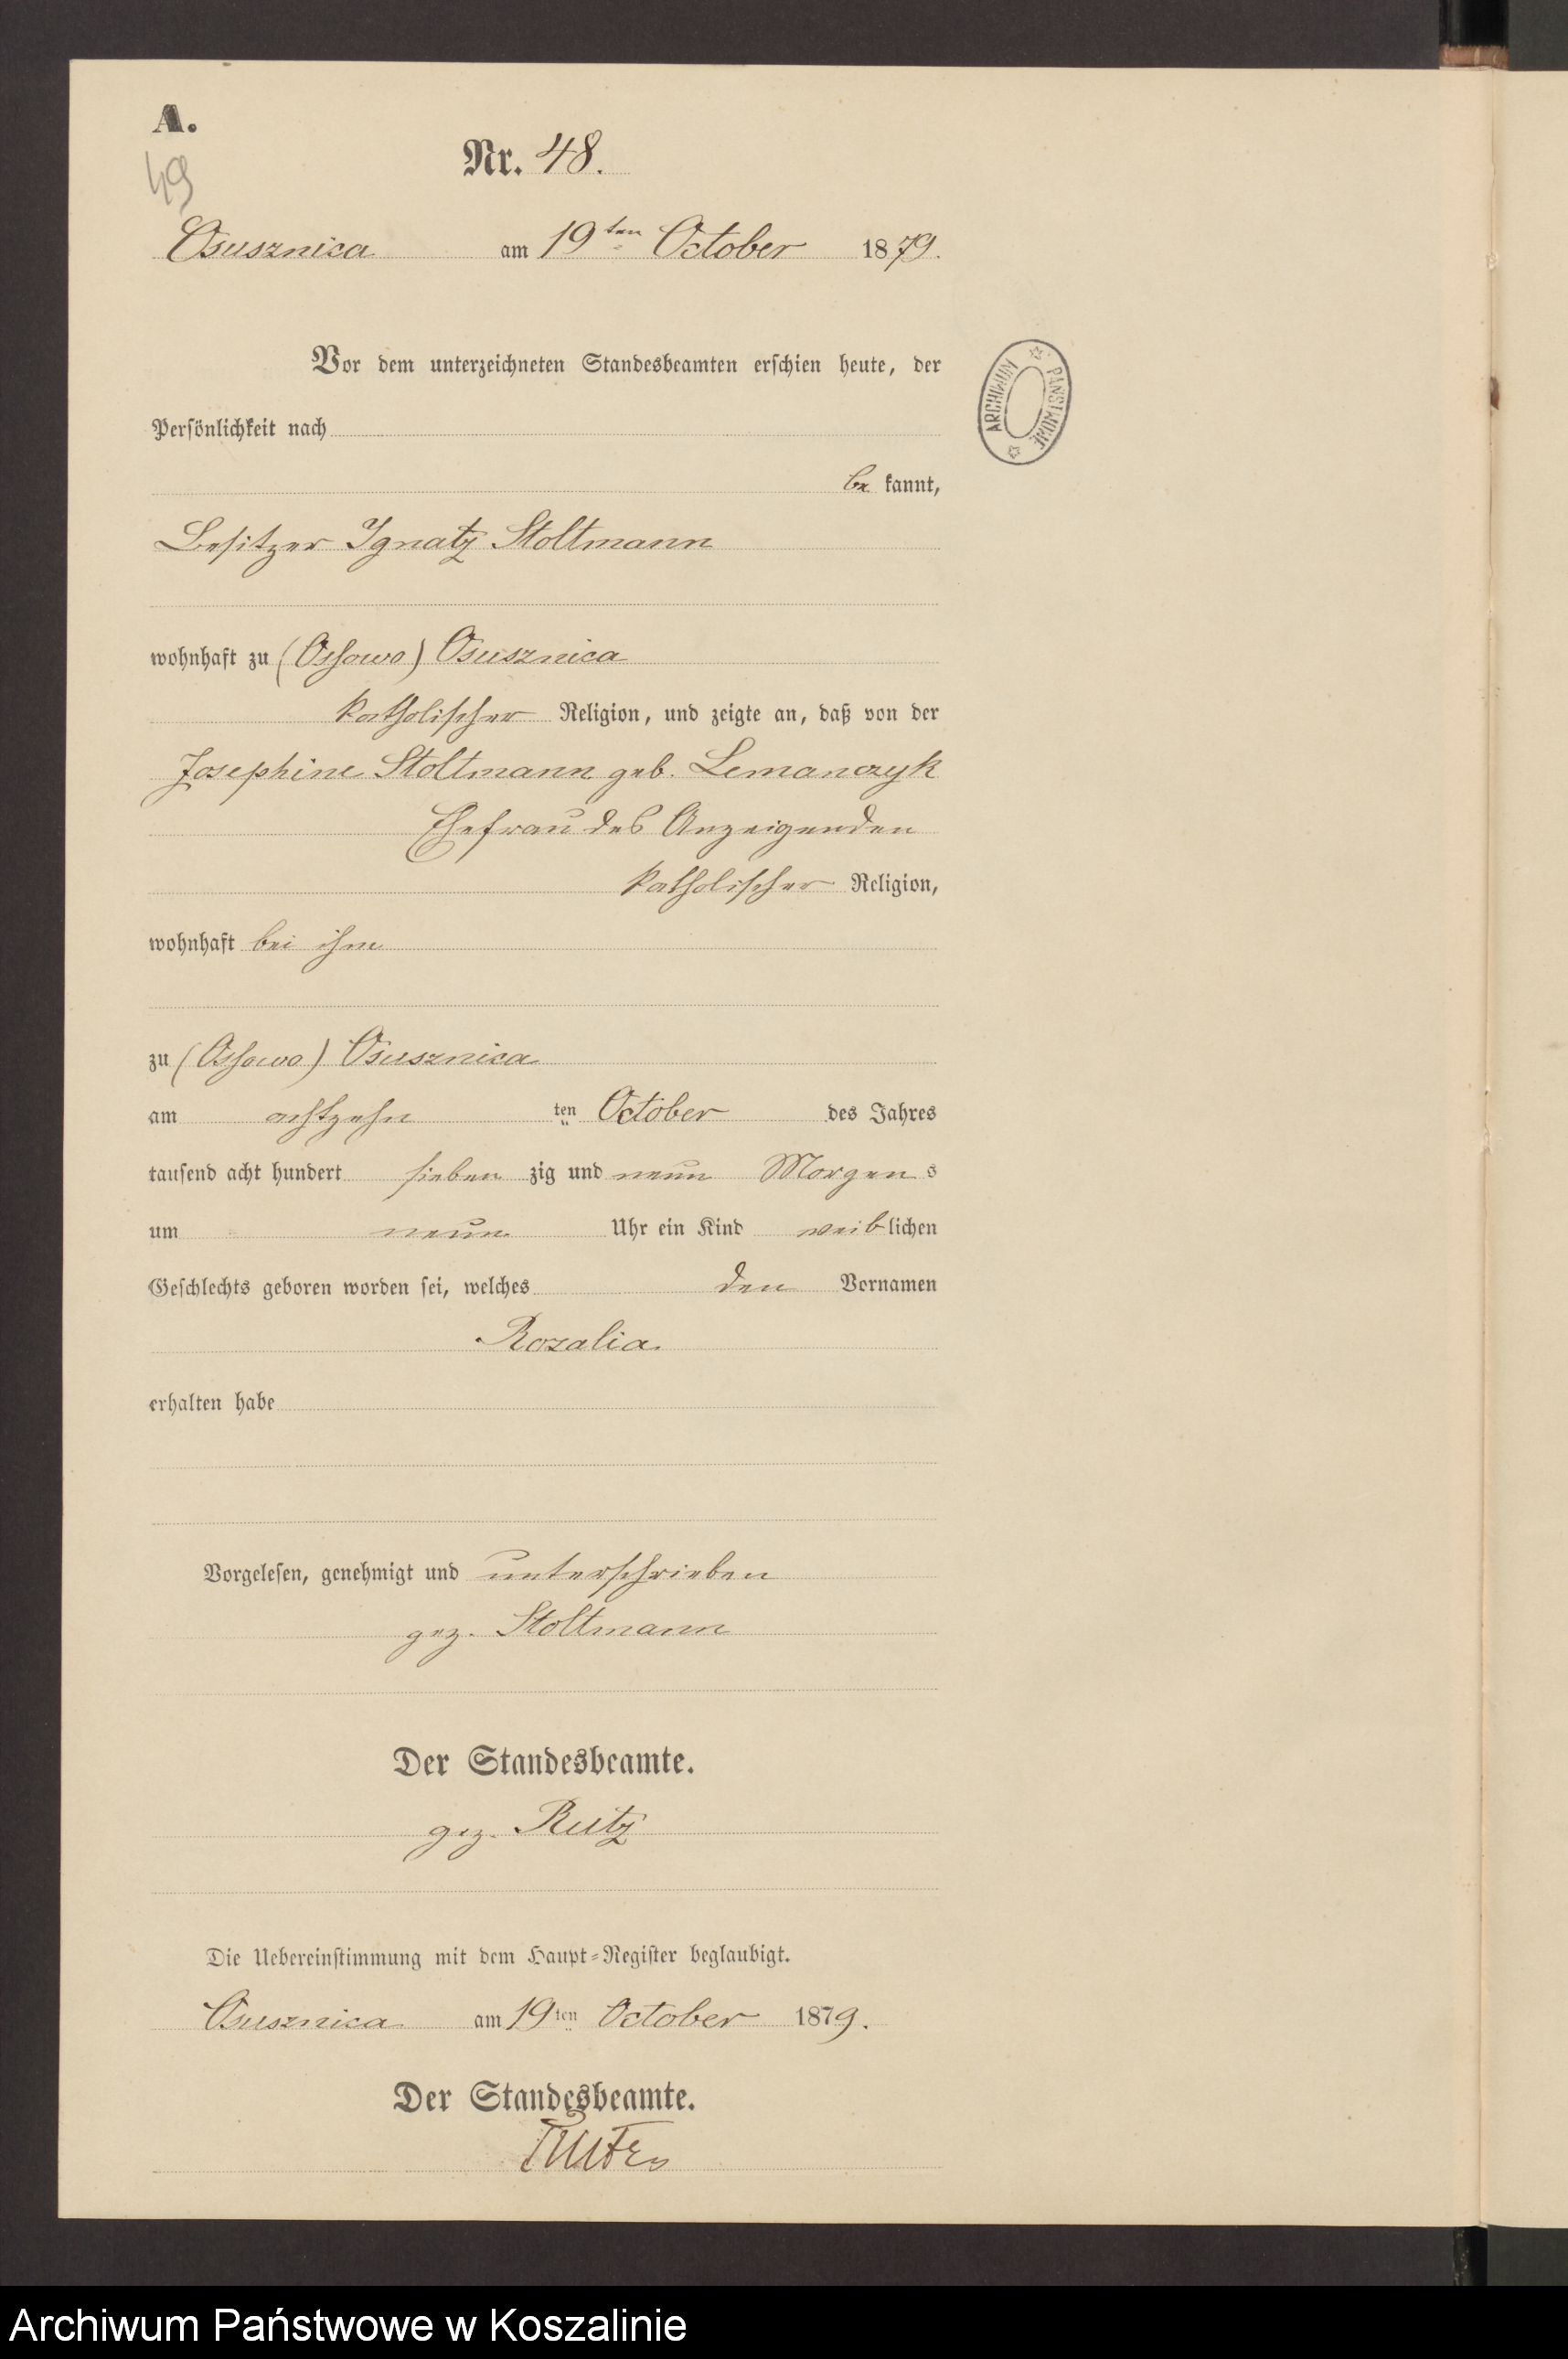 A.
Nr. 48.
49
Osusznica am 19ten October 1879.
Vor dem unterzeichneten Standesbeamten erschien heute, der
Persönlichkeit nach
be kannt,
Besitzer Ignatz Stoltmann
wohnhaft zu (Ossowo) Osusznica
katholischer Religion, und zeigte an, daß von der
Josephine Stoltmann geb. Lemanczyk
Ehefrau des Anzeigenden
katholischer Religion,
wohnhaft bei ihm
zu (Ossowo) Osusznica
am achtzehn ten October des Jahres
tausend acht hundert sieben zig und neun Morgen s
um neun Uhr ein Kind weiblichen
Geschlechts geboren worden sei, welches den Vornamen
Rozalia
erhalten habe
Vorgelesen, genehmigt und unterschrieben
gez. Stoltmann
Der Standesbeamte.
gez. Rutz
Die Uebereinstimmung mit dem Haupt-Register beglaubigt.
Osusznica am 19ten October 1879.
Der Standesbeamte.
ARCHIWUM PAŃSTWOWE
Archiwum Państwowe w Koszalinie